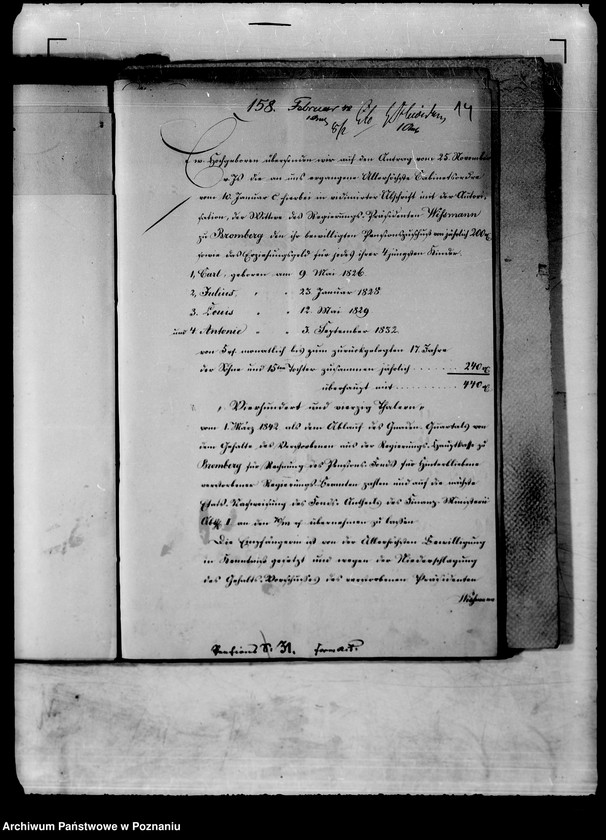 158. Februar 42 14
Ew. Hochgeboren übersenden wir auf den Antrag vom 25. November
v. Js die an uns ergangene Allerhöchste Cabinetsordre
vom 10. Januar c hierbei in vidimirter Abschrift mit der Autori-
sation, der Wittwe des Regierungs-Präsidenten Wißmann
zu Bromberg den ihr bewilligten Pensionszuschuß von jährlich 200 rℓ
sowie das Erziehungsgeld für jedes ihrer 4 jüngsten Kinder
1, Carl, geboren am 9. Mai 1826.
2, Julius, " " 23 Januar 1828
3. Louis " " 12. Mai 1829
und 4. Antonie " " 3. September 1832.
von 5 rℓ. monatlich bis zum zurückgelegten 17. Jahre
der Söhne und 15ten der Tochter zusammen jährlich . . . . . . 240 rℓ
überhaupt mit . . . . . . . . 440 rℓ
Vierhundert und vierzig Thalern,
vom 1. März 1842 als dem Ablauf des Gnaden-Quartals von
dem Gehalte des Verstorbenen aus der Regierungs-Hauptkasse zu
Bromberg für Rechnung des Pensions-Fonds für Hinterbliebene
verstorbener Regierungs-Beamten zahlen und auf die nächste
Etats-Nachweisung des Fonds-Antheils des Finanz-Ministerii
Abth. I. an den übernehmen zu lassen
Die Empfängerin ist von der Allerhöchsten Bewilligung
in Kenntniß gesetzt und wegen der Niederschlagung
des Gehalts-Vorschusses des verstorbenen Präsidenten
Wißmann
Pensions S. 31.
Archiwum Państwowe w Poznaniu